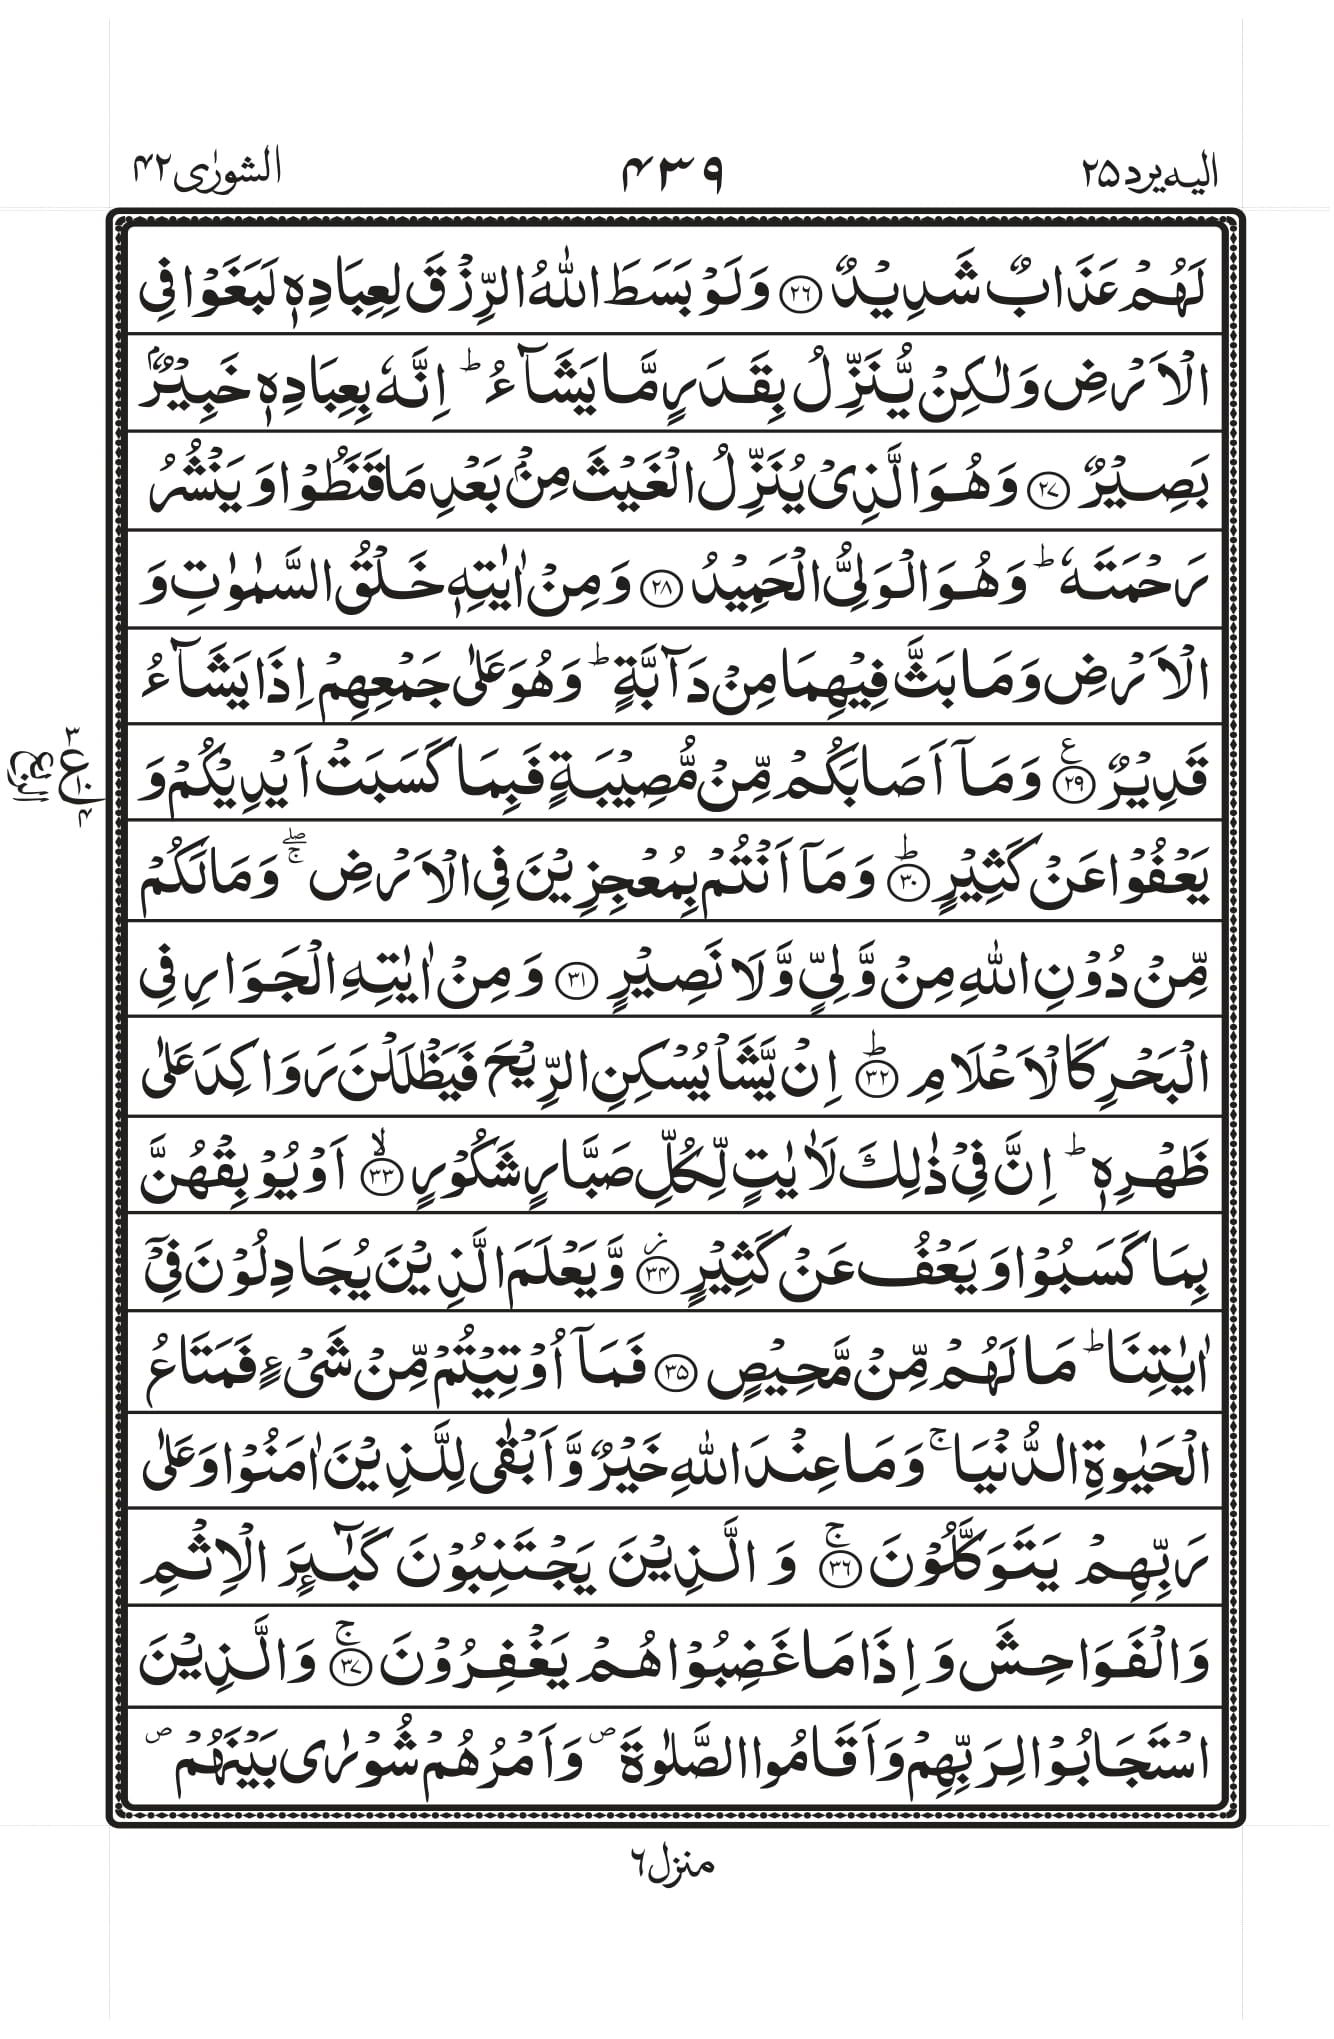 الیه یرد ۲۵
۴۳۹
الشورٰی ۴۲
لَهُمْ عَذَابٌ شَدِیْدٌ ﴿۲۶﴾ وَلَوْ بَسَطَ اللّٰهُ الرِّزْقَ لِعِبَادِهٖ لَبَغَوْا فِی
الْاَرْضِ وَلٰكِنْ یُّنَزِّلُ بِقَدَرٍ مَّا یَشَآءُ ؕ اِنَّهٗ بِعِبَادِهٖ خَبِیْرٌۢ
بَصِیْرٌ ﴿۲۷﴾ وَهُوَ الَّذِیْ یُنَزِّلُ الْغَیْثَ مِنْۢ بَعْدِ مَا قَنَطُوْا وَ یَنْشُرُ
رَحْمَتَهٗ ؕ وَهُوَ الْوَلِیُّ الْحَمِیْدُ ﴿۲۸﴾ وَ مِنْ اٰیٰتِهٖ خَلْقُ السَّمٰوٰتِ وَ
الْاَرْضِ وَمَا بَثَّ فِیْهِمَا مِنْ دَآبَّةٍ ؕ وَهُوَ عَلٰی جَمْعِهِمْ اِذَا یَشَآءُ
قَدِیْرٌ ﴿۲۹﴾ ع وَ مَاۤ اَصَابَكُمْ مِّنْ مُّصِیْبَةٍ فَبِمَا كَسَبَتْ اَیْدِیْكُمْ وَ
۳ ع ۱۰ ۴
یَعْفُوْا عَنْ كَثِیْرٍ ﴿۳۰﴾ؕ وَ مَاۤ اَنْتُمْ بِمُعْجِزِیْنَ فِی الْاَرْضِ ۚۖ وَمَا لَكُمْ
مِّنْ دُوْنِ اللّٰهِ مِنْ وَّلِیٍّ وَّ لَا نَصِیْرٍ ﴿۳۱﴾ وَ مِنْ اٰیٰتِهِ الْجَوَارِ فِی
الْبَحْرِ كَالْاَعْلَامِ ﴿۳۲﴾ؕ اِنْ یَّشَاْ یُسْكِنِ الرِّیْحَ فَیَظْلَلْنَ رَوَاكِدَ عَلٰی
ظَهْرِهٖ ؕ اِنَّ فِیْ ذٰلِكَ لَاٰیٰتٍ لِّكُلِّ صَبَّارٍ شَكُوْرٍ ﴿۳۳﴾ۙ اَوْ یُوْبِقْهُنَّ
بِمَا كَسَبُوْا وَ یَعْفُ عَنْ كَثِیْرٍ ﴿۳۴﴾ز وَّ یَعْلَمَ الَّذِیْنَ یُجَادِلُوْنَ فِیْۤ
اٰیٰتِنَا ؕ مَا لَهُمْ مِّنْ مَّحِیْصٍ ﴿۳۵﴾ فَمَاۤ اُوْتِیْتُمْ مِّنْ شَیْءٍ فَمَتَاعُ
الْحَیٰوةِ الدُّنْیَا ۚ وَ مَا عِنْدَ اللّٰهِ خَیْرٌ وَّ اَبْقٰی لِلَّذِیْنَ اٰمَنُوْا وَ عَلٰی
رَبِّهِمْ یَتَوَكَّلُوْنَ ﴿۳۶﴾ۚ وَ الَّذِیْنَ یَجْتَنِبُوْنَ كَبٰٓىِٕرَ الْاِثْمِ
وَالْفَوَاحِشَ وَ اِذَا مَا غَضِبُوْا هُمْ یَغْفِرُوْنَ ﴿۳۷﴾ۚ وَالَّذِیْنَ
اسْتَجَابُوْا لِرَبِّهِمْ وَ اَقَامُوا الصَّلٰوةَ ۪ وَ اَمْرُهُمْ شُوْرٰی بَیْنَهُمْ ۪
منزل ۶